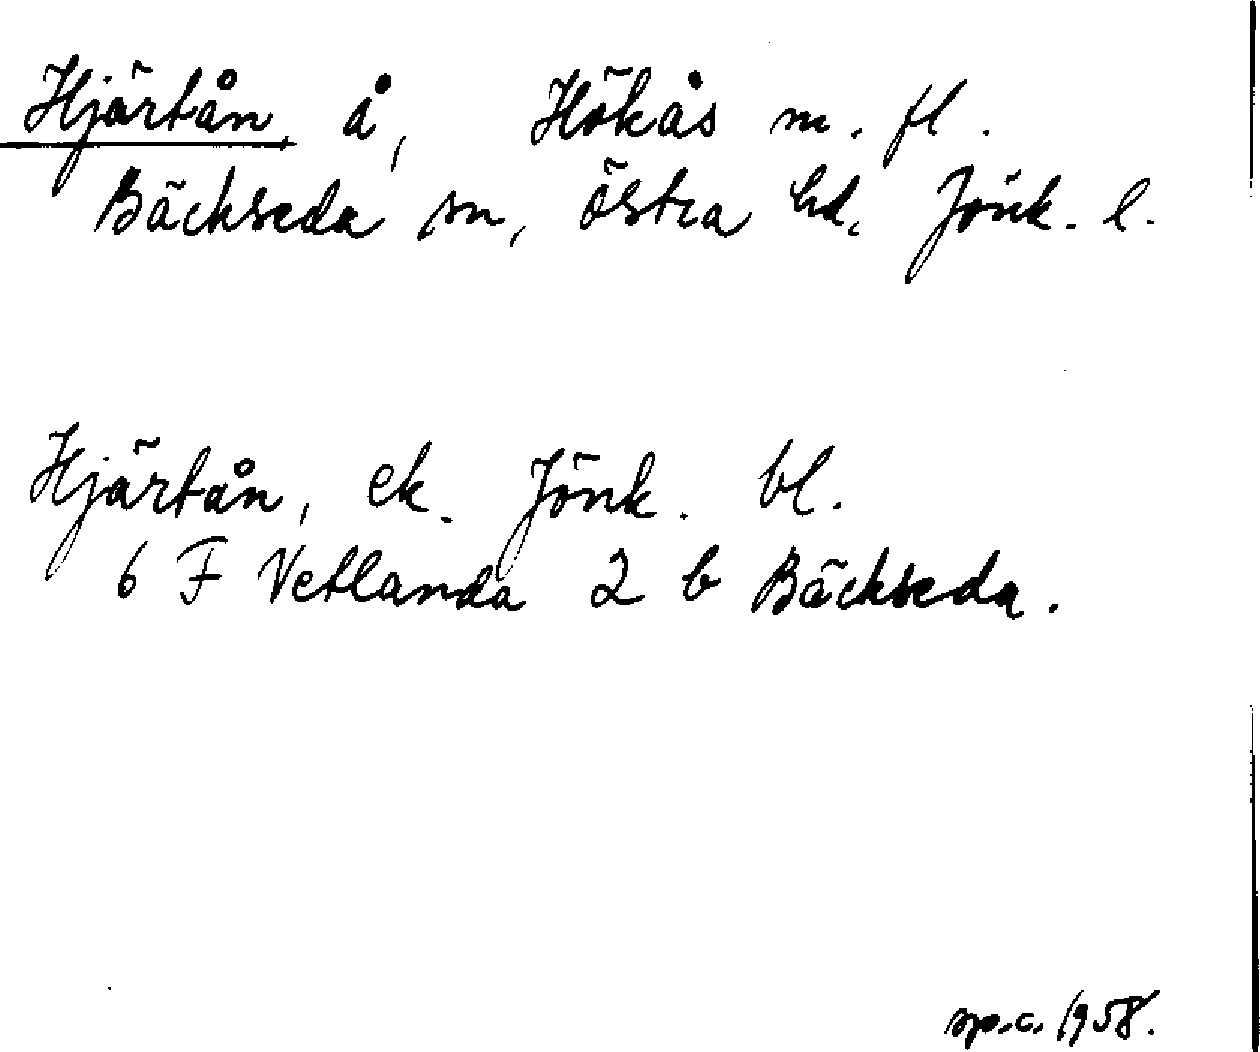 Hjärtån, å, Hökås m. fl.
Bäckseda sn, östra hd, Jönk. l.
Hjärtån, ek. Jönk. bl.
6 F Vetlanda 2 b Bäckseda.
1958.